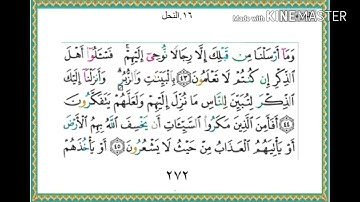 ١٦.النحل
Made with KINEMASTER
وَمَآ أَرۡسَلۡنَا مِن قَبۡلِكَ إِلَّا رِجَالٗا نُّوحِيٓ إِلَيۡهِمۡۖ فَسۡـَٔلُوٓاْ أَهۡلَ
ٱلذِّكۡرِ إِن كُنتُمۡ لَا تَعۡلَمُونَ ٤٣ بِٱلۡبَيِّنَٰتِ وَٱلزُّبُرِۗ وَأَنزَلۡنَآ إِلَيۡكَ
ٱلذِّكۡرَ لِتُبَيِّنَ لِلنَّاسِ مَا نُزِّلَ إِلَيۡهِمۡ وَلَعَلَّهُمۡ يَتَفَكَّرُونَ
٤٤ أَفَأَمِنَ ٱلَّذِينَ مَكَرُواْ ٱلسَّيِّـَٔاتِ أَن يَخۡسِفَ ٱللَّهُ بِهِمُ ٱلۡأَرۡضَ
أَوۡ يَأۡتِيَهُمُ ٱلۡعَذَابُ مِنۡ حَيۡثُ لَا يَشۡعُرُونَ ٤٥ أَوۡ يَأۡخُذَهُمۡ
٢٧٢